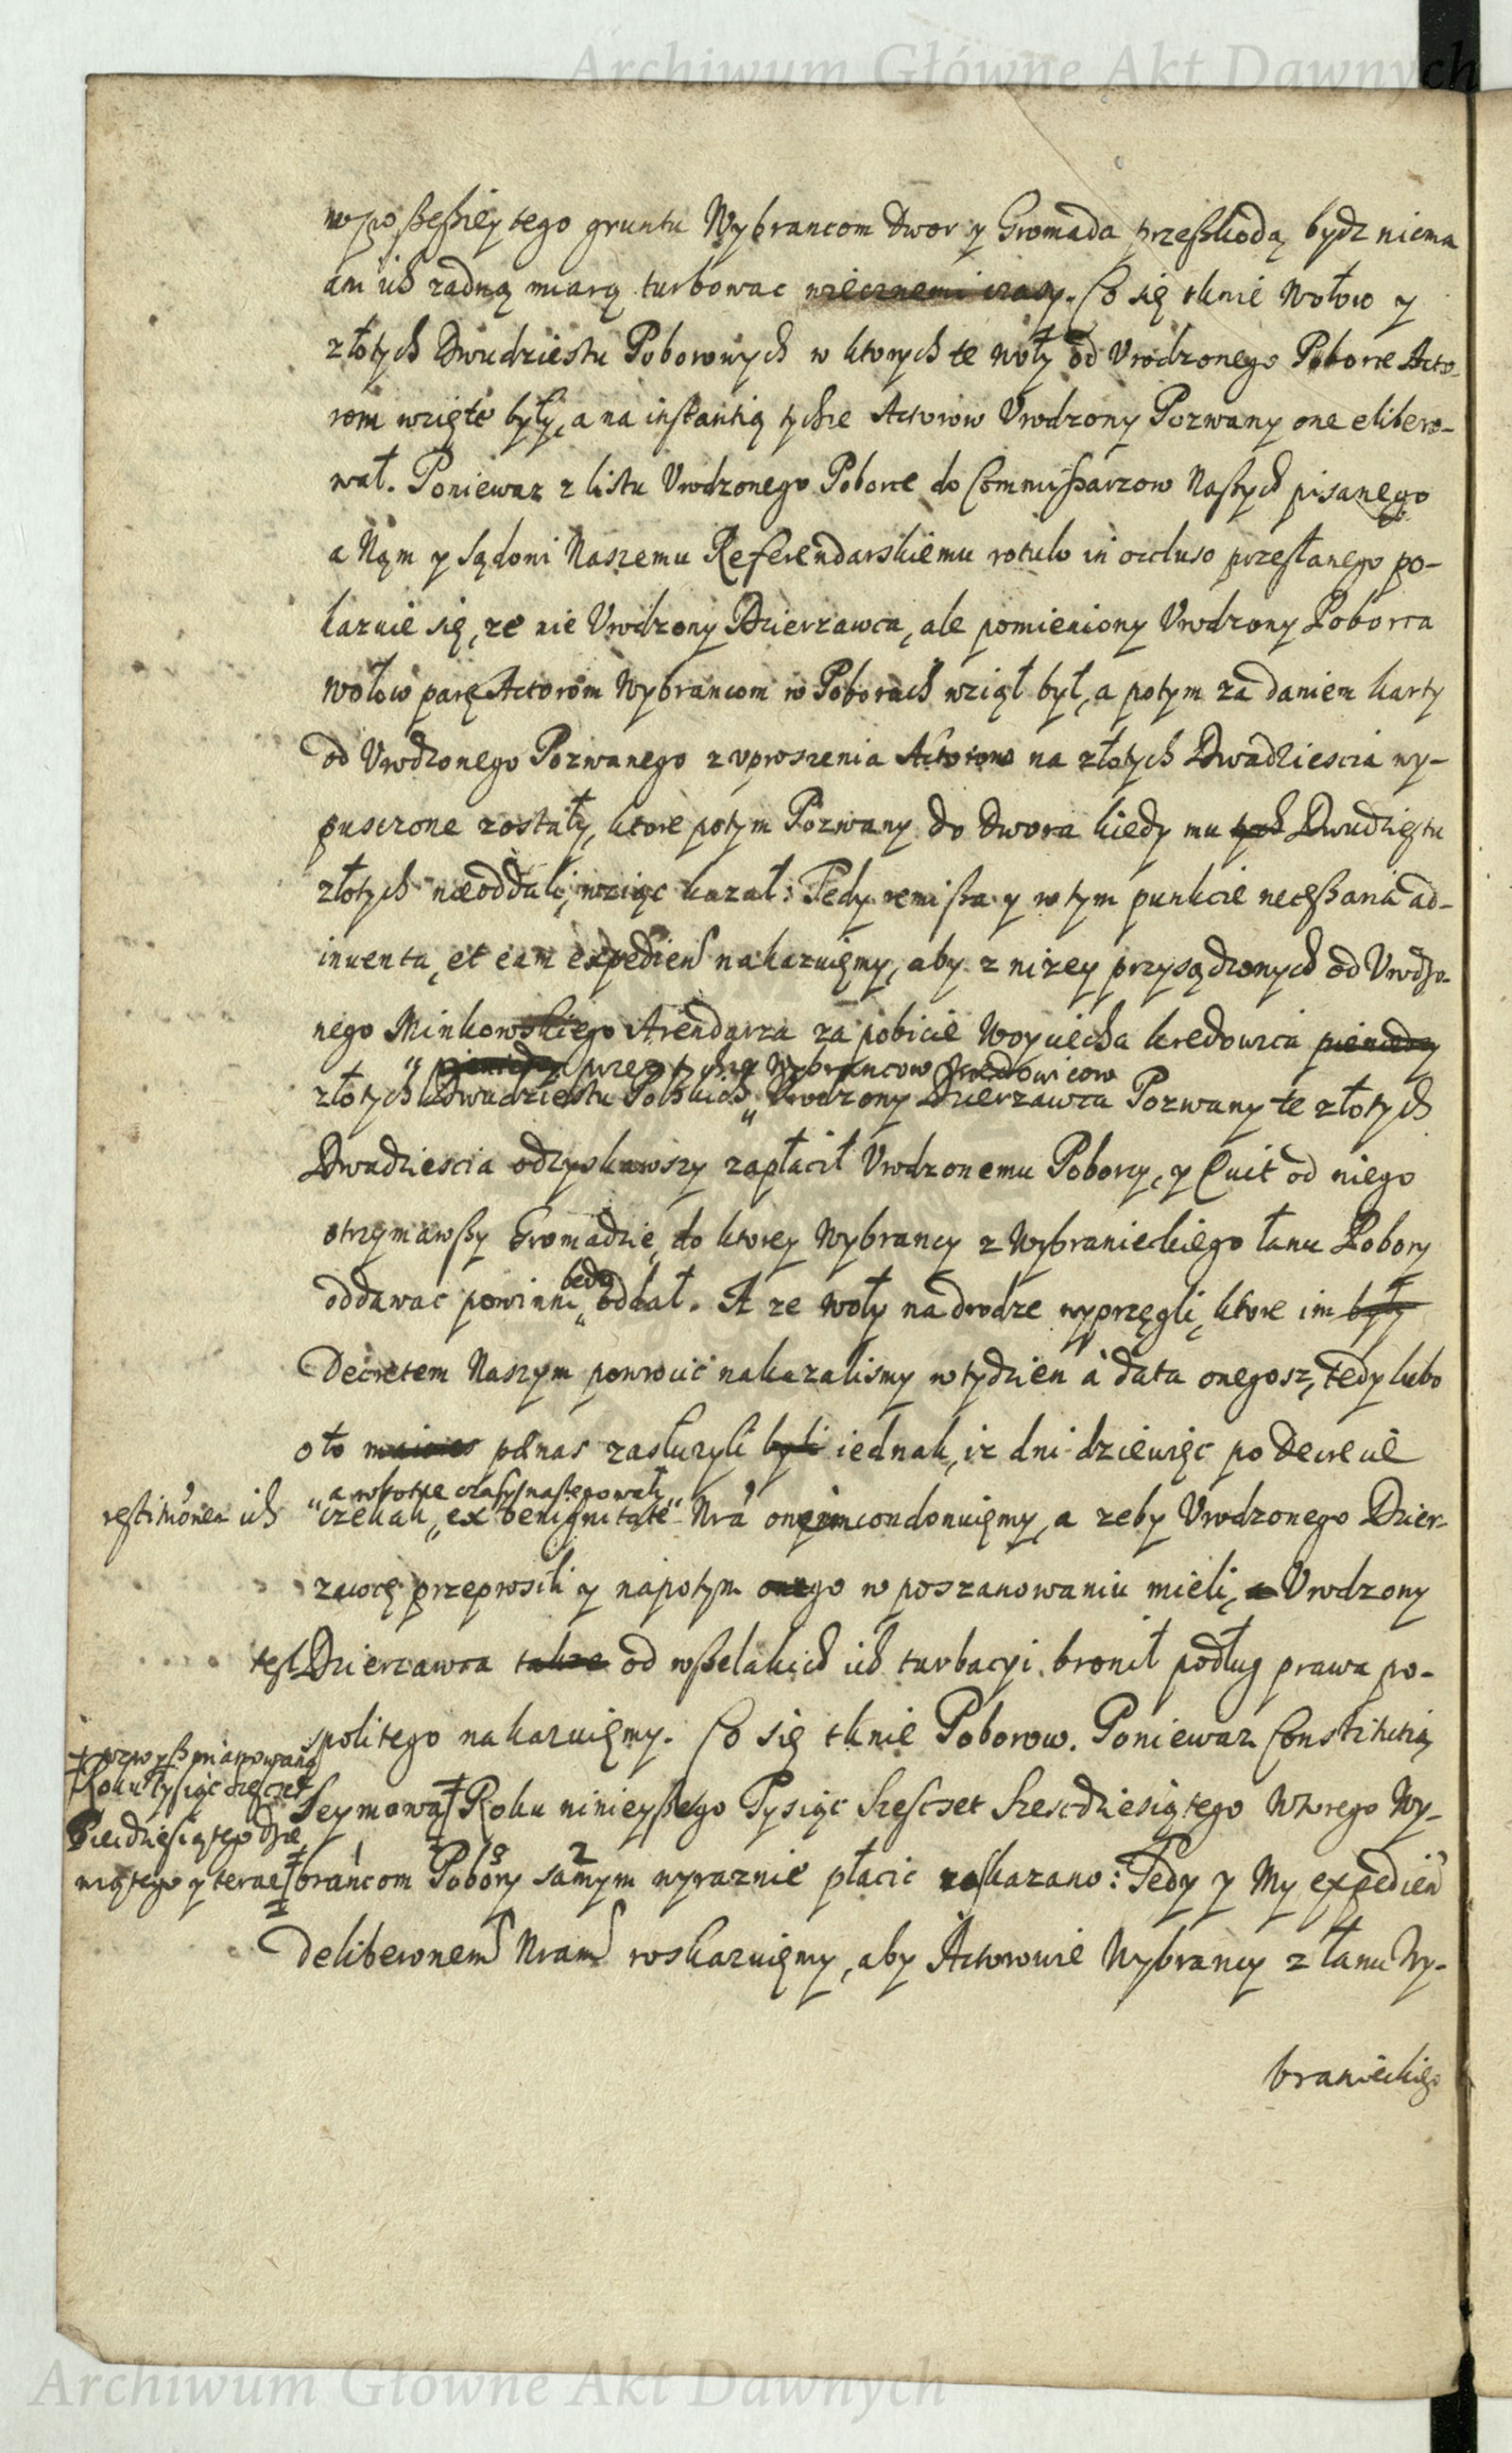 Archiwum Główne Akt Dawnych
w possessiey tego gruntu Wybrancom Dwor y Gromada przeszkodą bydz niema
ani ich zadną miarą turbowac wiecznemi czasy. Co się tknie Wołow y
złotych Dwudziestu Poborowych w ktorych te woły od Vrodzonego Poborce Acto-
rom wzięte były, a na instantią tychze Actorow Vrodzony Pozwany one elibero-
wał. Poniewaz z listu Vrodzonego Poborce do Commissarzow Naszych pisanego
a Nąm y Sądoni Naszemu Referendarskiemu rotulo in occluso przesłanego po-
kazuie się, ze nie Vrodzony Dzierzawca, ale pomieniony Vrodzony Poborca
wołow parę Actorom Wybrancom w Poborach wziął był, a potym za daniem karty
od Vrodzonego Pozwanego z vproszenia Actorow na złotych Dwadziescia wy-
pusczone zostały, ktore potym Pozwany do Dwora kiedy mu tych Dwudziestu
złotych nieoddali, wziąc kazał: Tedy remissa y w tym punkcie necessaria ad-
inventa, et eam expedien nakazuięmy, aby z nizey przysądzonych od Vrodzo-
nego Minkowskiego Arendarza za pobicie Woyciecha kredowica pieniędzy
" pieniędzy przez tychze Wybrancow Kredowicow
złotych Dwudziestu Polskich " Vrodzony Dzierzawca Pozwany te złotych
Dwadziescia odzyskawszy zapłacił Vrodzonemu Poborcy, y Quit od niego
otrzymawszy Gromadzie, do ktorey Wybrancy z Wybranieckiego łanu Pobory
będą
oddawac powinni " oddał. A ze woły na drodze wyprzęgli, ktore im były
Decretem Naszym powrocić nakazalismy w tydzien à data onegosz, tedy lubo
o to winies panas zasłuzyli byli iednak, iz dni dziewięc po Decrecie
" a w krotkie czasy nastepowali "
restitionem ich czekali, " ex benignitate Nra onęim condonuięmy, a zeby Vrodzonego Dzier-
zawcę przeprosili y napotym onego w poszanowaniu mieli, a Vrodzony
tesz Dzierzawca takze od wszelakich ich turbacyi bronił podług prawa po-
spolitego nakazuięmy. Co się tknie Poborow. Poniewaz Constitutią
+ przwysz mianowaną
Roku Tysiąc Szescset
Piecdziesiątego dzie
wiątego y teraz
Seymową Roku ninieyszego Tysiąc Szescset Szescdziesiątego Wtorego Wy-
1 3 2
brancom Pobory samym wyraznie płacic roskazano: Tedy y My expedien
Deliberonem Nram roskazuięmy, aby Actorowie Wybrancy z łanu Wy-
branieckiego
Archiwum Główne Akt Dawnych